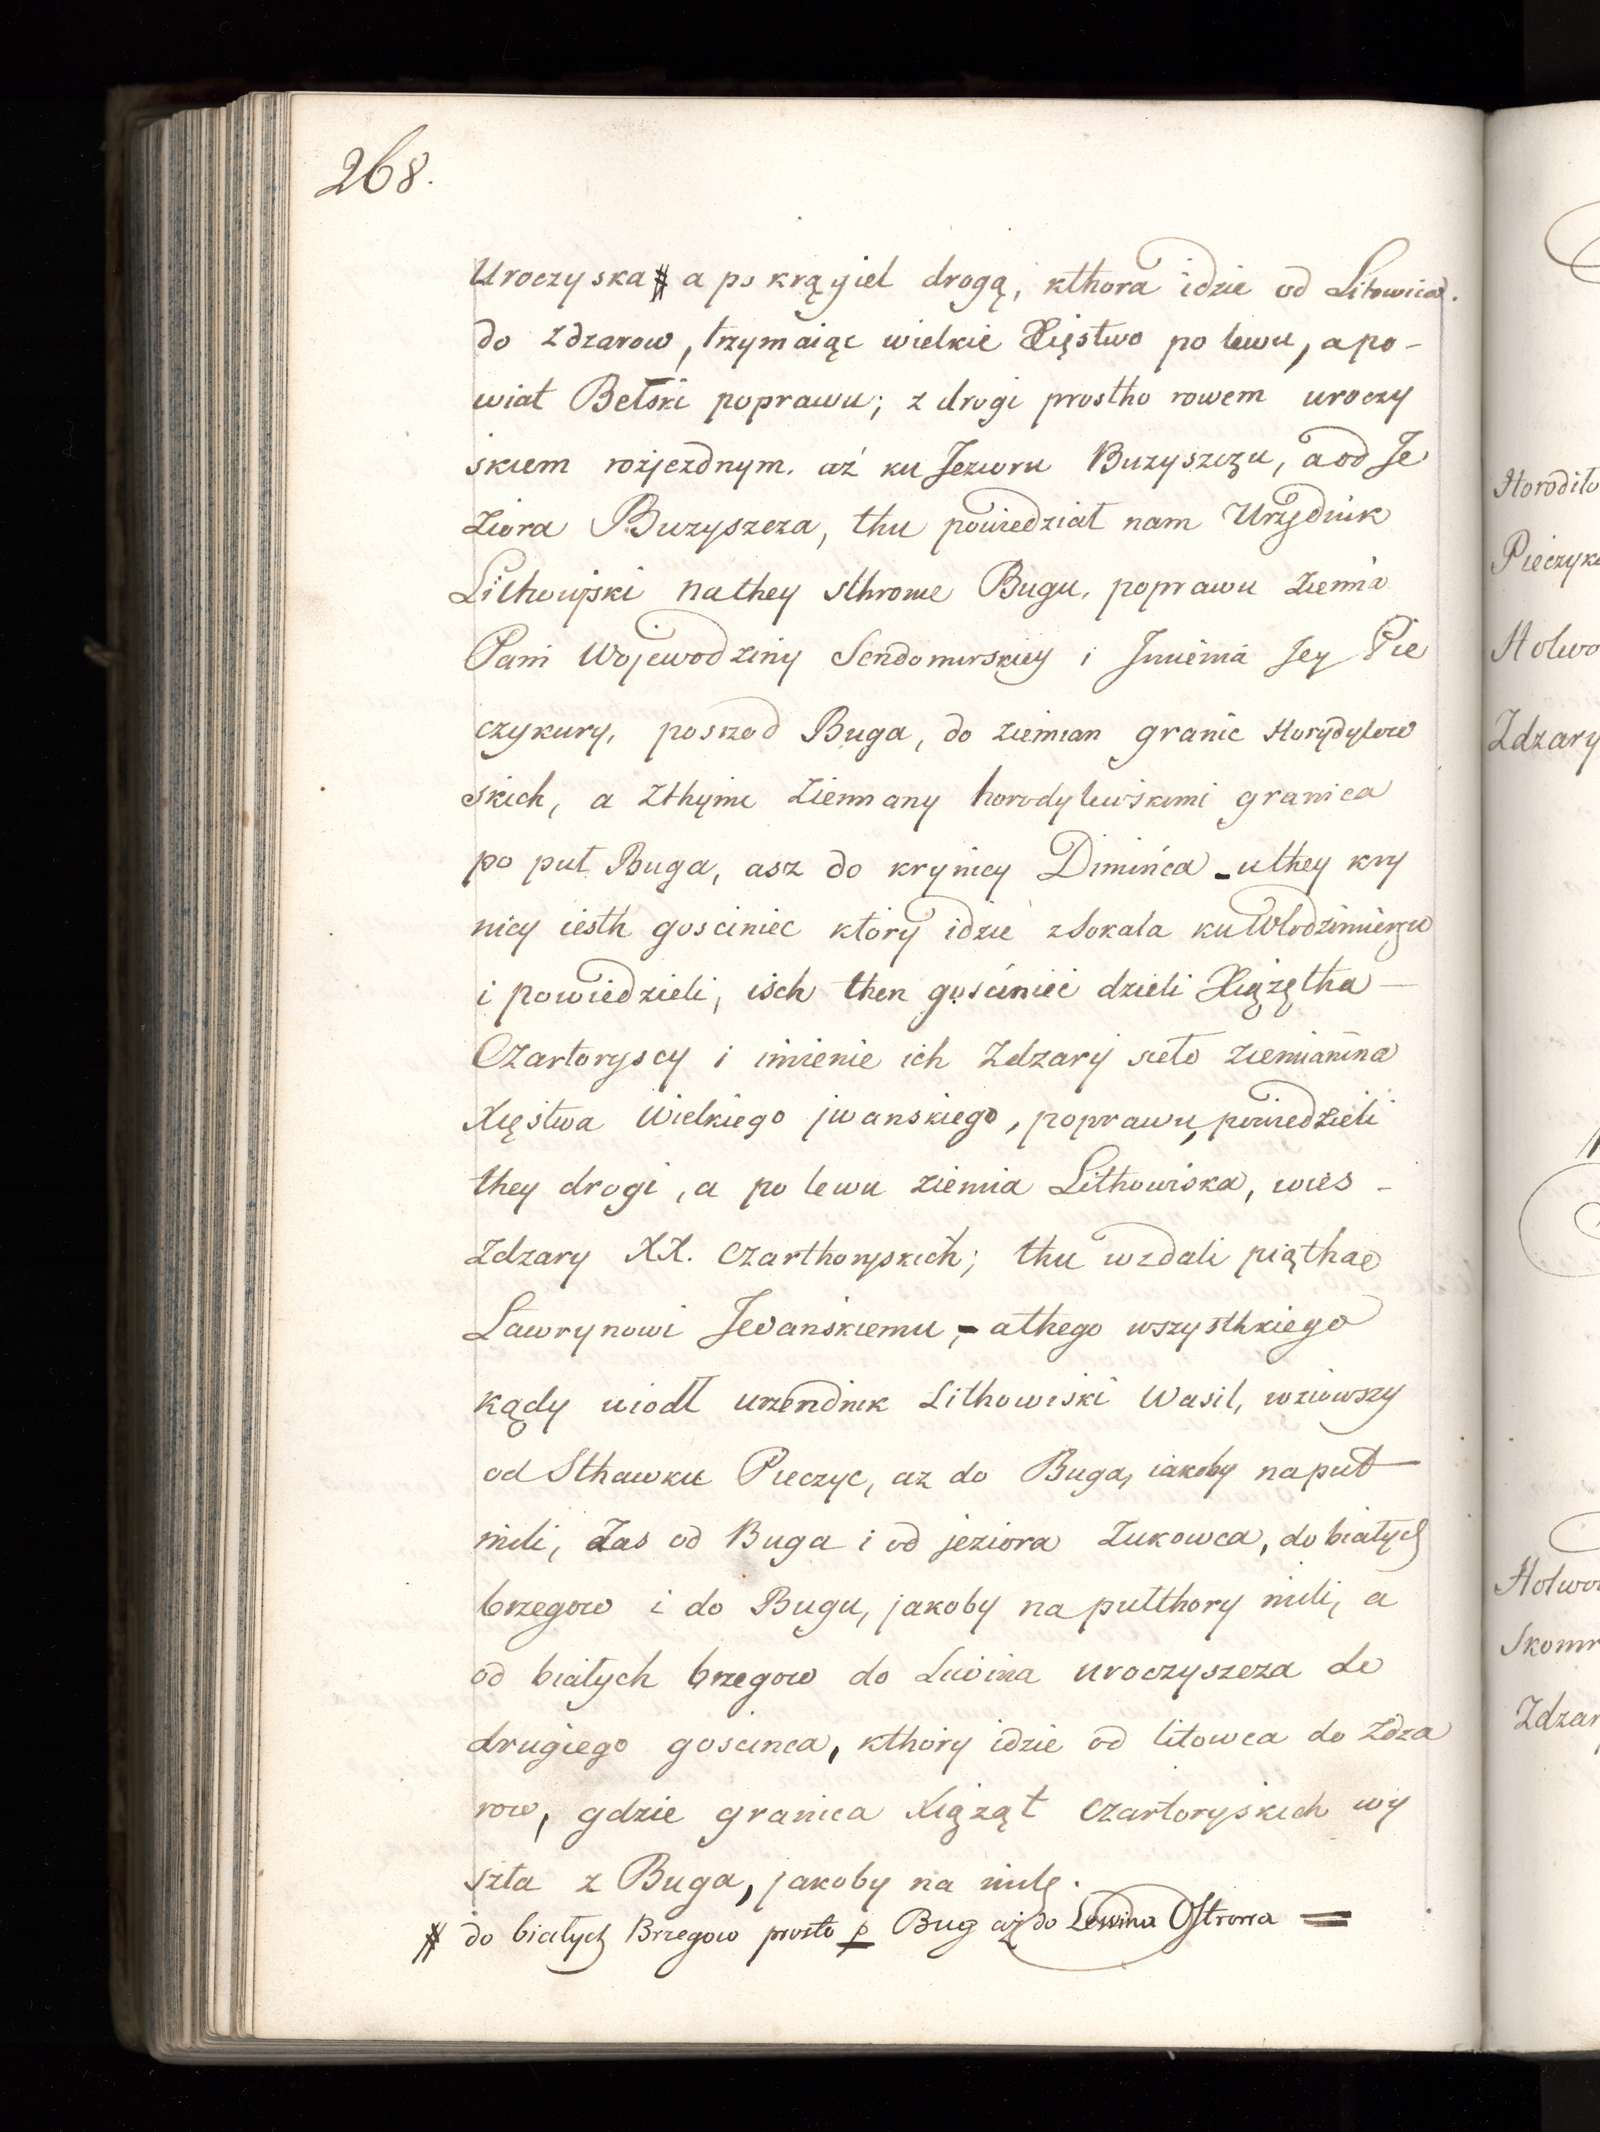 268.
Uroczyska # a po krągiel drogą, kthora idzie od Litowica.
do Zdzarow, trzymaiąc wielkie Xięstwo po lewu, a po-
wiat Bełski poprawu; z drogi prostho rowem uroczy
skiem rozjezdnym. aż ku Jezioru Buzyszczu, a od Je
ziora Buzyszcza, thu powiedział nam Urzędnik
Lithowiski na they sthronie Bugu, poprawu ziemia
Pani Wojewodziny Sendomirskiey i Jmienia Jey Pie
czykury, poszod Buga, do ziemian granic Horydylow
skich, a zthymi ziemiany horodylewskiemi granica
po puł Buga, asz do krynicy Dimińca - u they kry
nicy iesth gosciniec który idzie z Sokala ku Włodzimierzu
i powiedzieli, isch then gościniec dzieli Xiążętha —
Czartoryscy i imienie ich Zdzary sieło ziemianina
Xięstwa Wielkiego jwanskiego, poprawu, powiedzieli
they drogi, a po lewu ziemia Lithowiska, wies -
Zdzary XX. Czarthoryskich; thu wzdali piąthae
Lawrynowi Jevanskiemu, - a thego wszysthkiego
kądy wiodł urzendnik Lithowiski Wasil, wziowszy
od Sthawku Pieczyc, az do Buga, iakoby na puł
mili, Zas od Buga i od jeziora Zukowca, do białych
brzegow i do Bugu, jakoby na pułthory mili, a
od białych brzegow do Lwina uroczyszcza do
drugiego goscinca, kthory idzie od litowca do Zdza
row, gdzie granica Xiąząt Czartoryskich wy
szła z Buga, jakoby na milę.
# do białych Brzegow prosto p Bug aż do Lewina Ostrora =
Horodiło
Pieczyk
Hołwo
Zdzary
Hołwo
Skomr
Zdzar